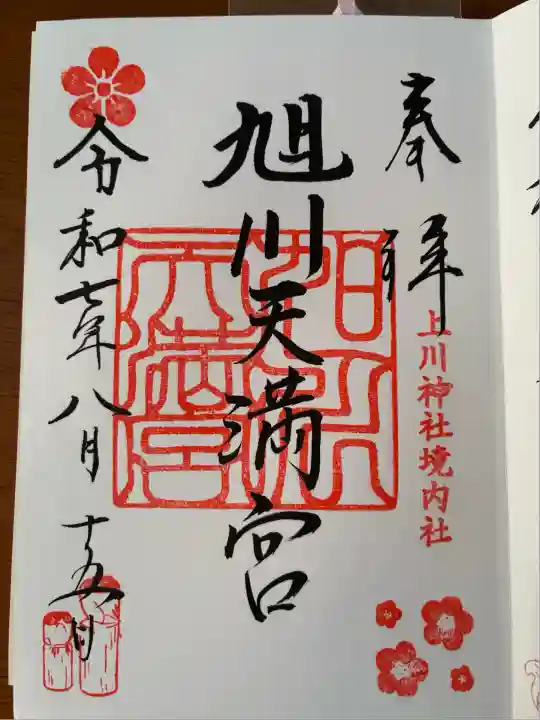 奉拝
上川神社境内社
旭川天満宮
令和七年八月十五日